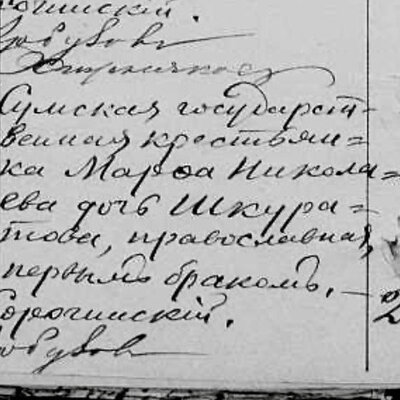 рогинскій.
Сумская государст-
венная крестьян=
ка Марѳа Никола=
ева дочь Шкура=
това, православная,
первымъ бракомъ.
орогинскій.